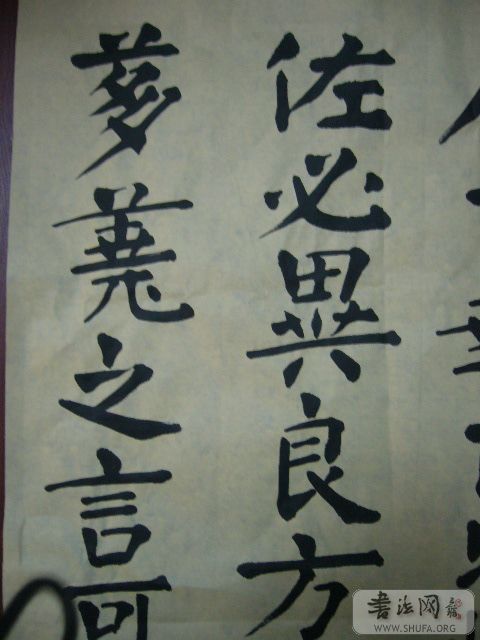 佐必異良方
蒭蕘之言可
書法网
WWW.SHUFA.ORG